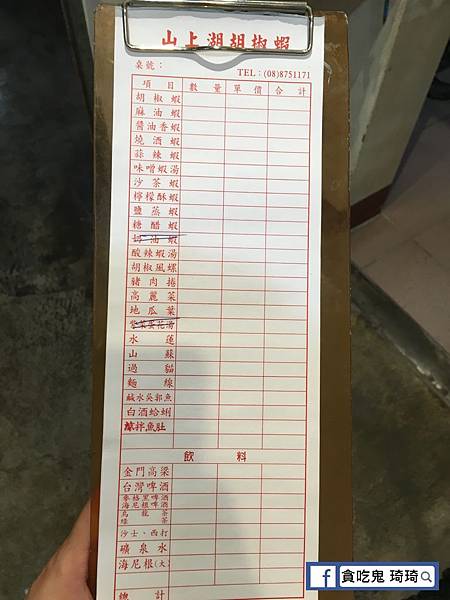 山上湖胡椒蝦
桌號：
TEL：(08)8751171
項目 數量 單價 合計
胡椒蝦
麻油蝦
醬油香蝦
燒酒蝦
蒜辣蝦
味噌蝦湯
沙茶蝦
檸檬酥蝦
鹽蒸蝦
糖醋蝦
奶油蝦
酸辣蝦湯
胡椒風螺
豬肉捲
高麗菜
地瓜葉
紫菜蛋花湯
水蓮
山蘇
過貓
麵線
鹹水吳郭魚
白酒蛤蜊
涼拌魚肚
飲料
金門高粱
台灣啤酒
麥格黑啤酒
海尼根啤酒
烏龍茶
綠茶
沙士、西打
礦泉水
海尼根(大)
總計
f 貪吃鬼 琦琦